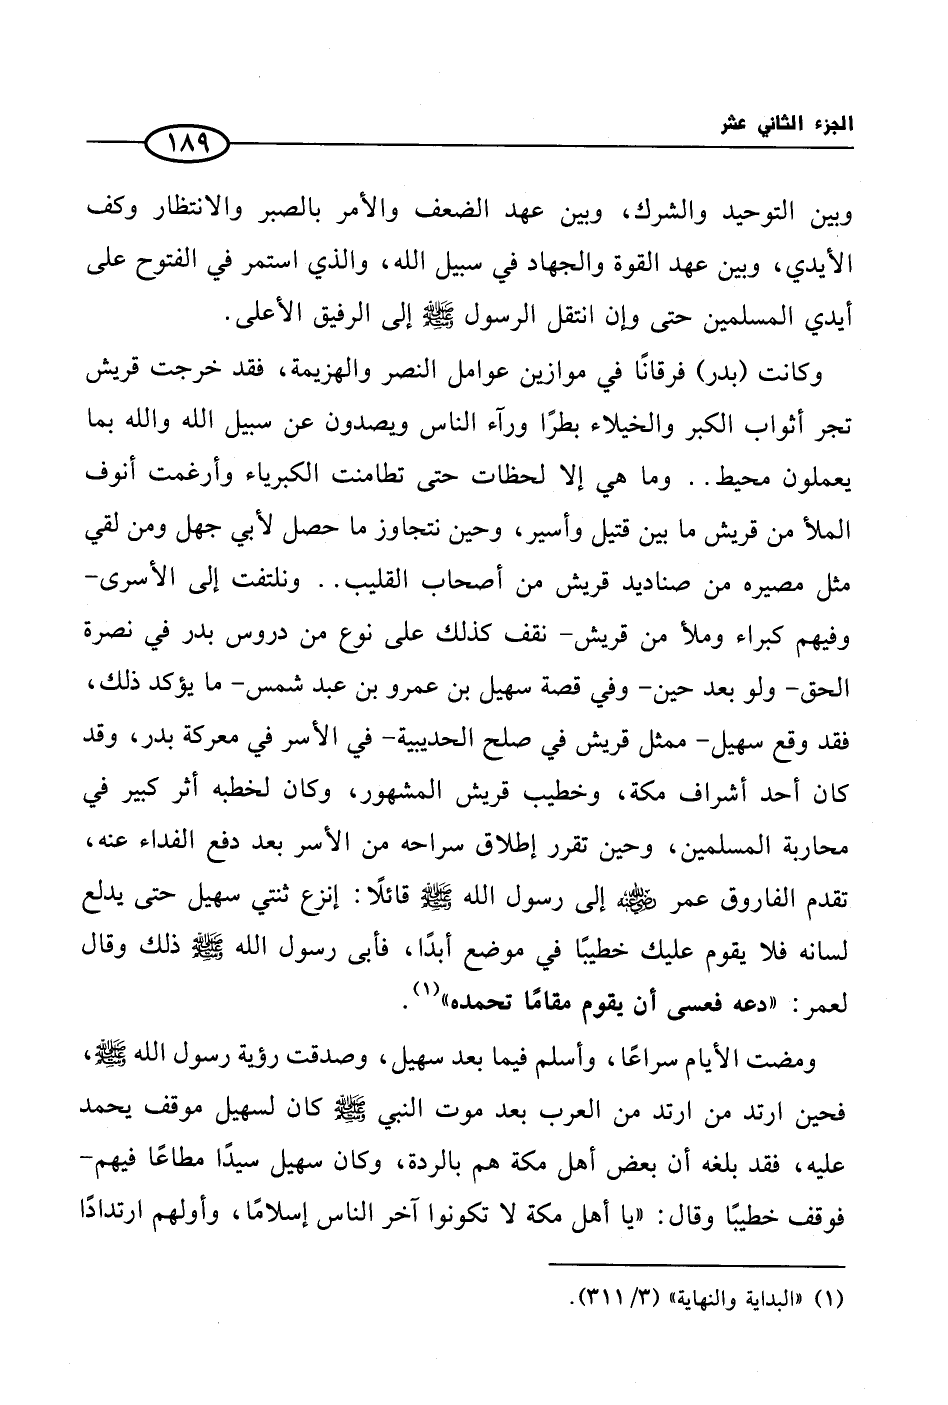 الجزء الثاني عشر
١٨٩
وبين التوحيد والشرك، وبين عهد الضعف والأمر بالصبر والانتظار وكف
الأيدي، وبين عهد القوة والجهاد في سبيل الله، والذي استمر في الفتوح على
أيدي المسلمين حتى وإن انتقل الرسول ﷺ إلى الرفيق الأعلى.
وكانت (بدر) فرقانًا في موازين عوامل النصر والهزيمة، فقد خرجت قريش
تجر أثواب الكبر والخيلاء بطرًا ورآء الناس ويصدون عن سبيل الله والله بما
يعملون محيط.. وما هي إلا لحظات حتى تطامنت الكبرياء وأرغمت أنوف
الملأ من قريش ما بين قتيل وأسير، وحين نتجاوز ما حصل لأبي جهل ومن لقي
مثل مصيره من صناديد قريش من أصحاب القليب.. ونلتفت إلى الأسرى-
وفيهم كبراء وملأ من قريش- نقف كذلك على نوع من دروس بدر في نصرة
الحق- ولو بعد حين- وفي قصة سهيل بن عمرو بن عبد شمس- ما يؤكد ذلك،
فقد وقع سهيل- ممثل قريش في صلح الحديبية- في الأسر في معركة بدر، وقد
كان أحد أشراف مكة، وخطيب قريش المشهور، وكان لخطبه أثر كبير في
محاربة المسلمين، وحين تقرر إطلاق سراحه من الأسر بعد دفع الفداء عنه،
تقدم الفاروق عمر رضي الله عنه إلى رسول الله ﷺ قائلًا: إنزع ثنتي سهيل حتى يدلع
لسانه فلا يقوم عليك خطيبًا في موضع أبدًا، فأبى رسول الله ﷺ ذلك وقال
لعمر: «دعه فعسى أن يقوم مقامًا تحمده»(١).
ومضت الأيام سراعًا، وأسلم فيما بعد سهيل، وصدقت رؤية رسول الله ﷺ،
فحين ارتد من ارتد من العرب بعد موت النبي ﷺ كان لسهيل موقف يحمد
عليه، فقد بلغه أن بعض أهل مكة هم بالردة، وكان سهيل سيدًا مطاعًا فيهم-
فوقف خطيبًا وقال: «يا أهل مكة لا تكونوا آخر الناس إسلامًا، وأولهم ارتدادًا
(١) «البداية والنهاية» (٣١١/٣).